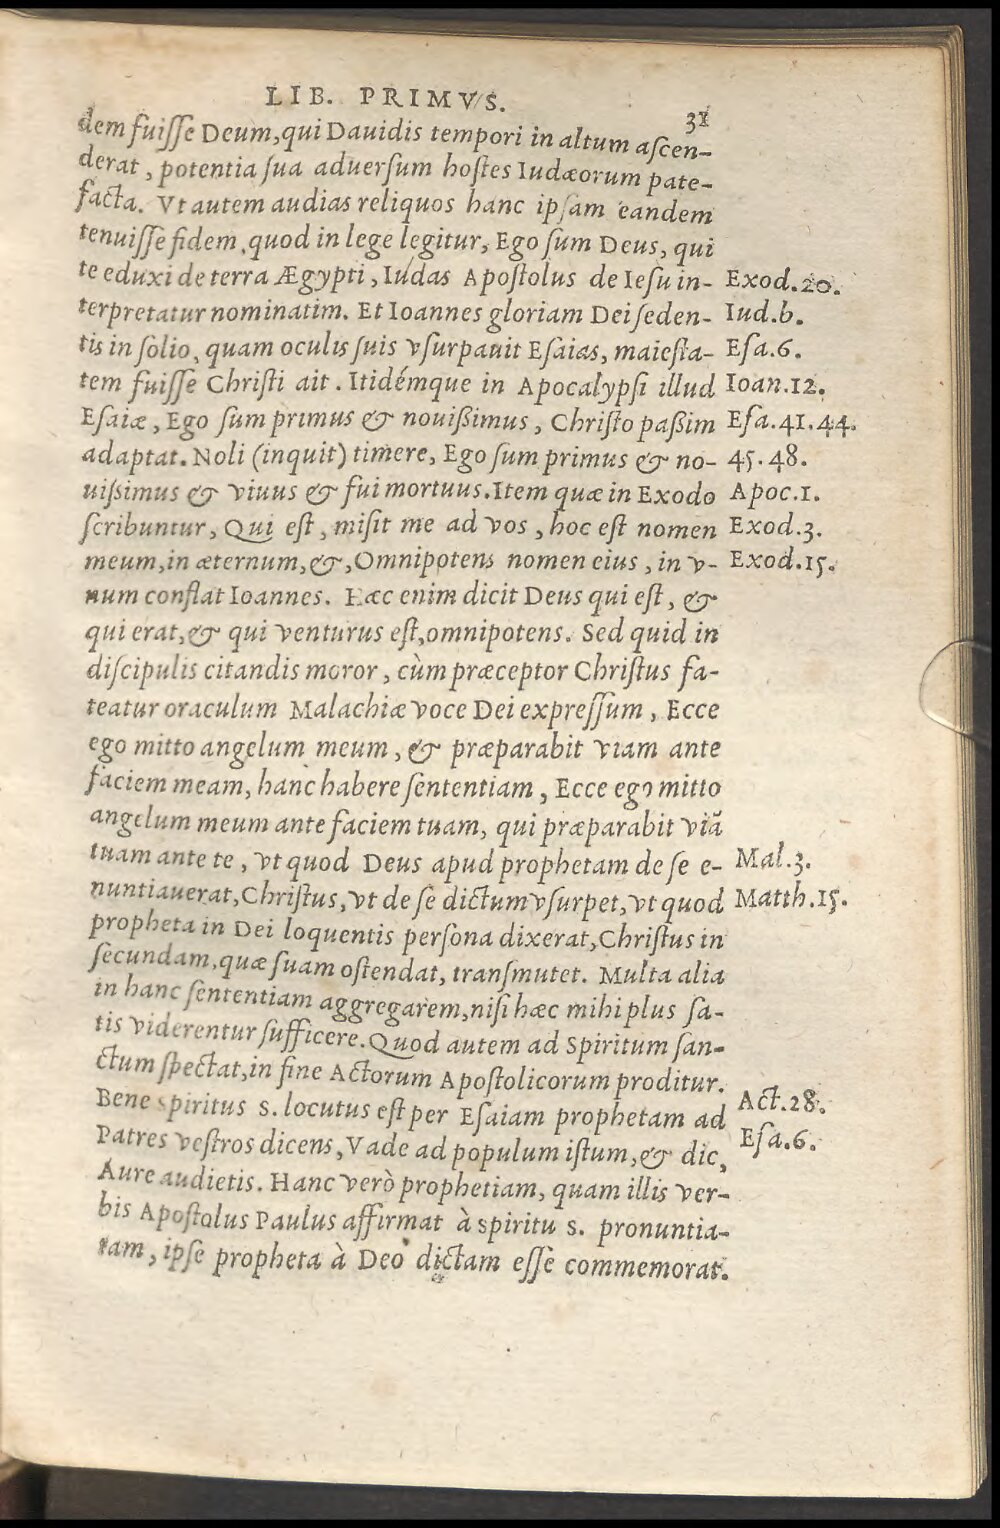 LIB. PRIMVS.
31
dem fuiſſe Deum, qui Dauidis tempori in altum aſcen-
derat, potentia ſua aduerſum hoſtes Iudæorum pate-
facta. Vt autem audias reliquos hanc ipſam eandem
tenuiſſe fidem, quod in lege legitur, Ego ſum Deus, qui
te eduxi de terra Ægypti, Iudas Apoſtolus de Ieſu in- Exod.20.
terpretatur nominatim. Et Ioannes gloriam Dei ſeden- Iud.b.
tis in ſolio, quam oculis ſuis vſurpauit Eſaias, maieſta- Eſa.6.
tem fuiſſe Chriſti ait. Itidémque in Apocalypſi illud Ioan.12.
Eſaiæ, Ego ſum primus & nouißimus, Chriſto paßim Eſa.41.44.
adaptat. Noli (inquit) timere, Ego ſum primus & no- 45.48.
uißimus & viuus & fui mortuus. Item quæ in Exodo Apoc.1.
ſcribuntur, Qui eſt, miſit me ad vos, hoc eſt nomen Exod.3.
meum, in æternum, &, Omnipotens nomen eius, in v- Exod.15.
num conflat Ioannes. Hæc enim dicit Deus qui eſt, &
qui erat, & qui venturus eſt, omnipotens. Sed quid in
diſcipulis citandis moror, cùm præceptor Chriſtus fa-
teatur oraculum Malachiæ voce Dei expreſſum, Ecce
ego mitto angelum meum, & præparabit viam ante
faciem meam, hanc habere ſententiam, Ecce ego mitto
angelum meum ante faciem tuam, qui præparabit viā
tuam ante te, vt quod Deus apud prophetam de ſe e- Mal.3.
nuntiauerat, Chriſtus, vt de ſe dictum vſurpet, vt quod Matth.15.
propheta in Dei loquentis perſona dixerat, Chriſtus in
ſecundam, quæ ſuam oſtendat, tranſmutet. Multa alia
in hanc ſententiam aggregarem, niſi hæc mihi plus ſa-
tis viderentur ſufficere. Quod autem ad Spiritum ſan-
ctum ſpectat, in fine Actorum Apoſtolicorum proditur.
Bene ſpiritus S. locutus eſt per Eſaiam prophetam ad Act.28.
Patres veſtros dicens, Vade ad populum iſtum, & dic, Eſa.6.
Aure audietis. Hanc verò prophetiam, quam illis ver-
bis Apoſtolus Paulus affirmat à Spiritu S. pronuntia-
tam, ipſe propheta à Deo dictam eſſe commemorat.